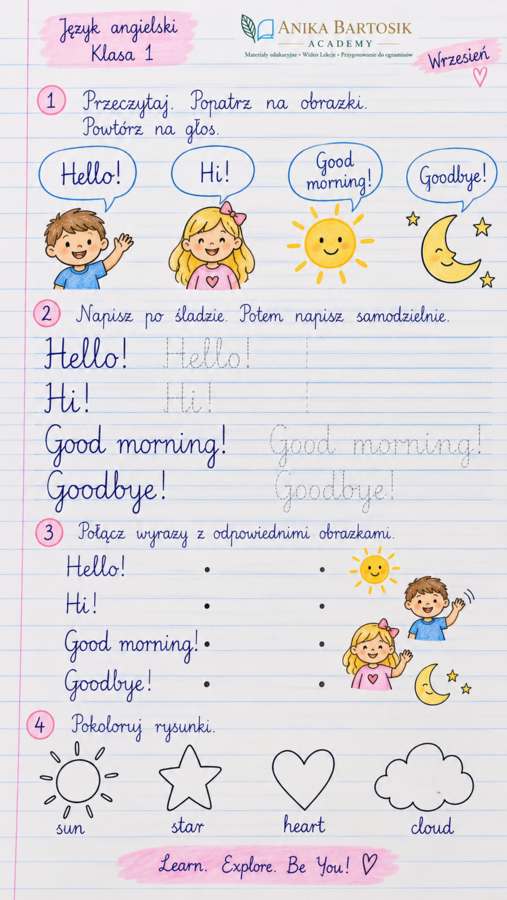 Język angielski
Klasa 1
ANIKA BARTOSIK
ACADEMY
Materiały edukacyjne • Wideo Lekcje • Przygotowanie do egzaminów
Wrzesień
1 Przeczytaj. Popatrz na obrazki.
Powtórz na głos.
Hello! Hi! Good morning! Goodbye!
2 Napisz po śladzie. Potem napisz samodzielnie.
Hello! Hello!
Hi! Hi!
Good morning! Good morning!
Goodbye! Goodbye!
3 Połącz wyrazy z odpowiednimi obrazkami.
Hello!
Hi!
Good morning!
Goodbye!
4 Pokoloruj rysunki.
sun star heart cloud
Learn. Explore. Be You!